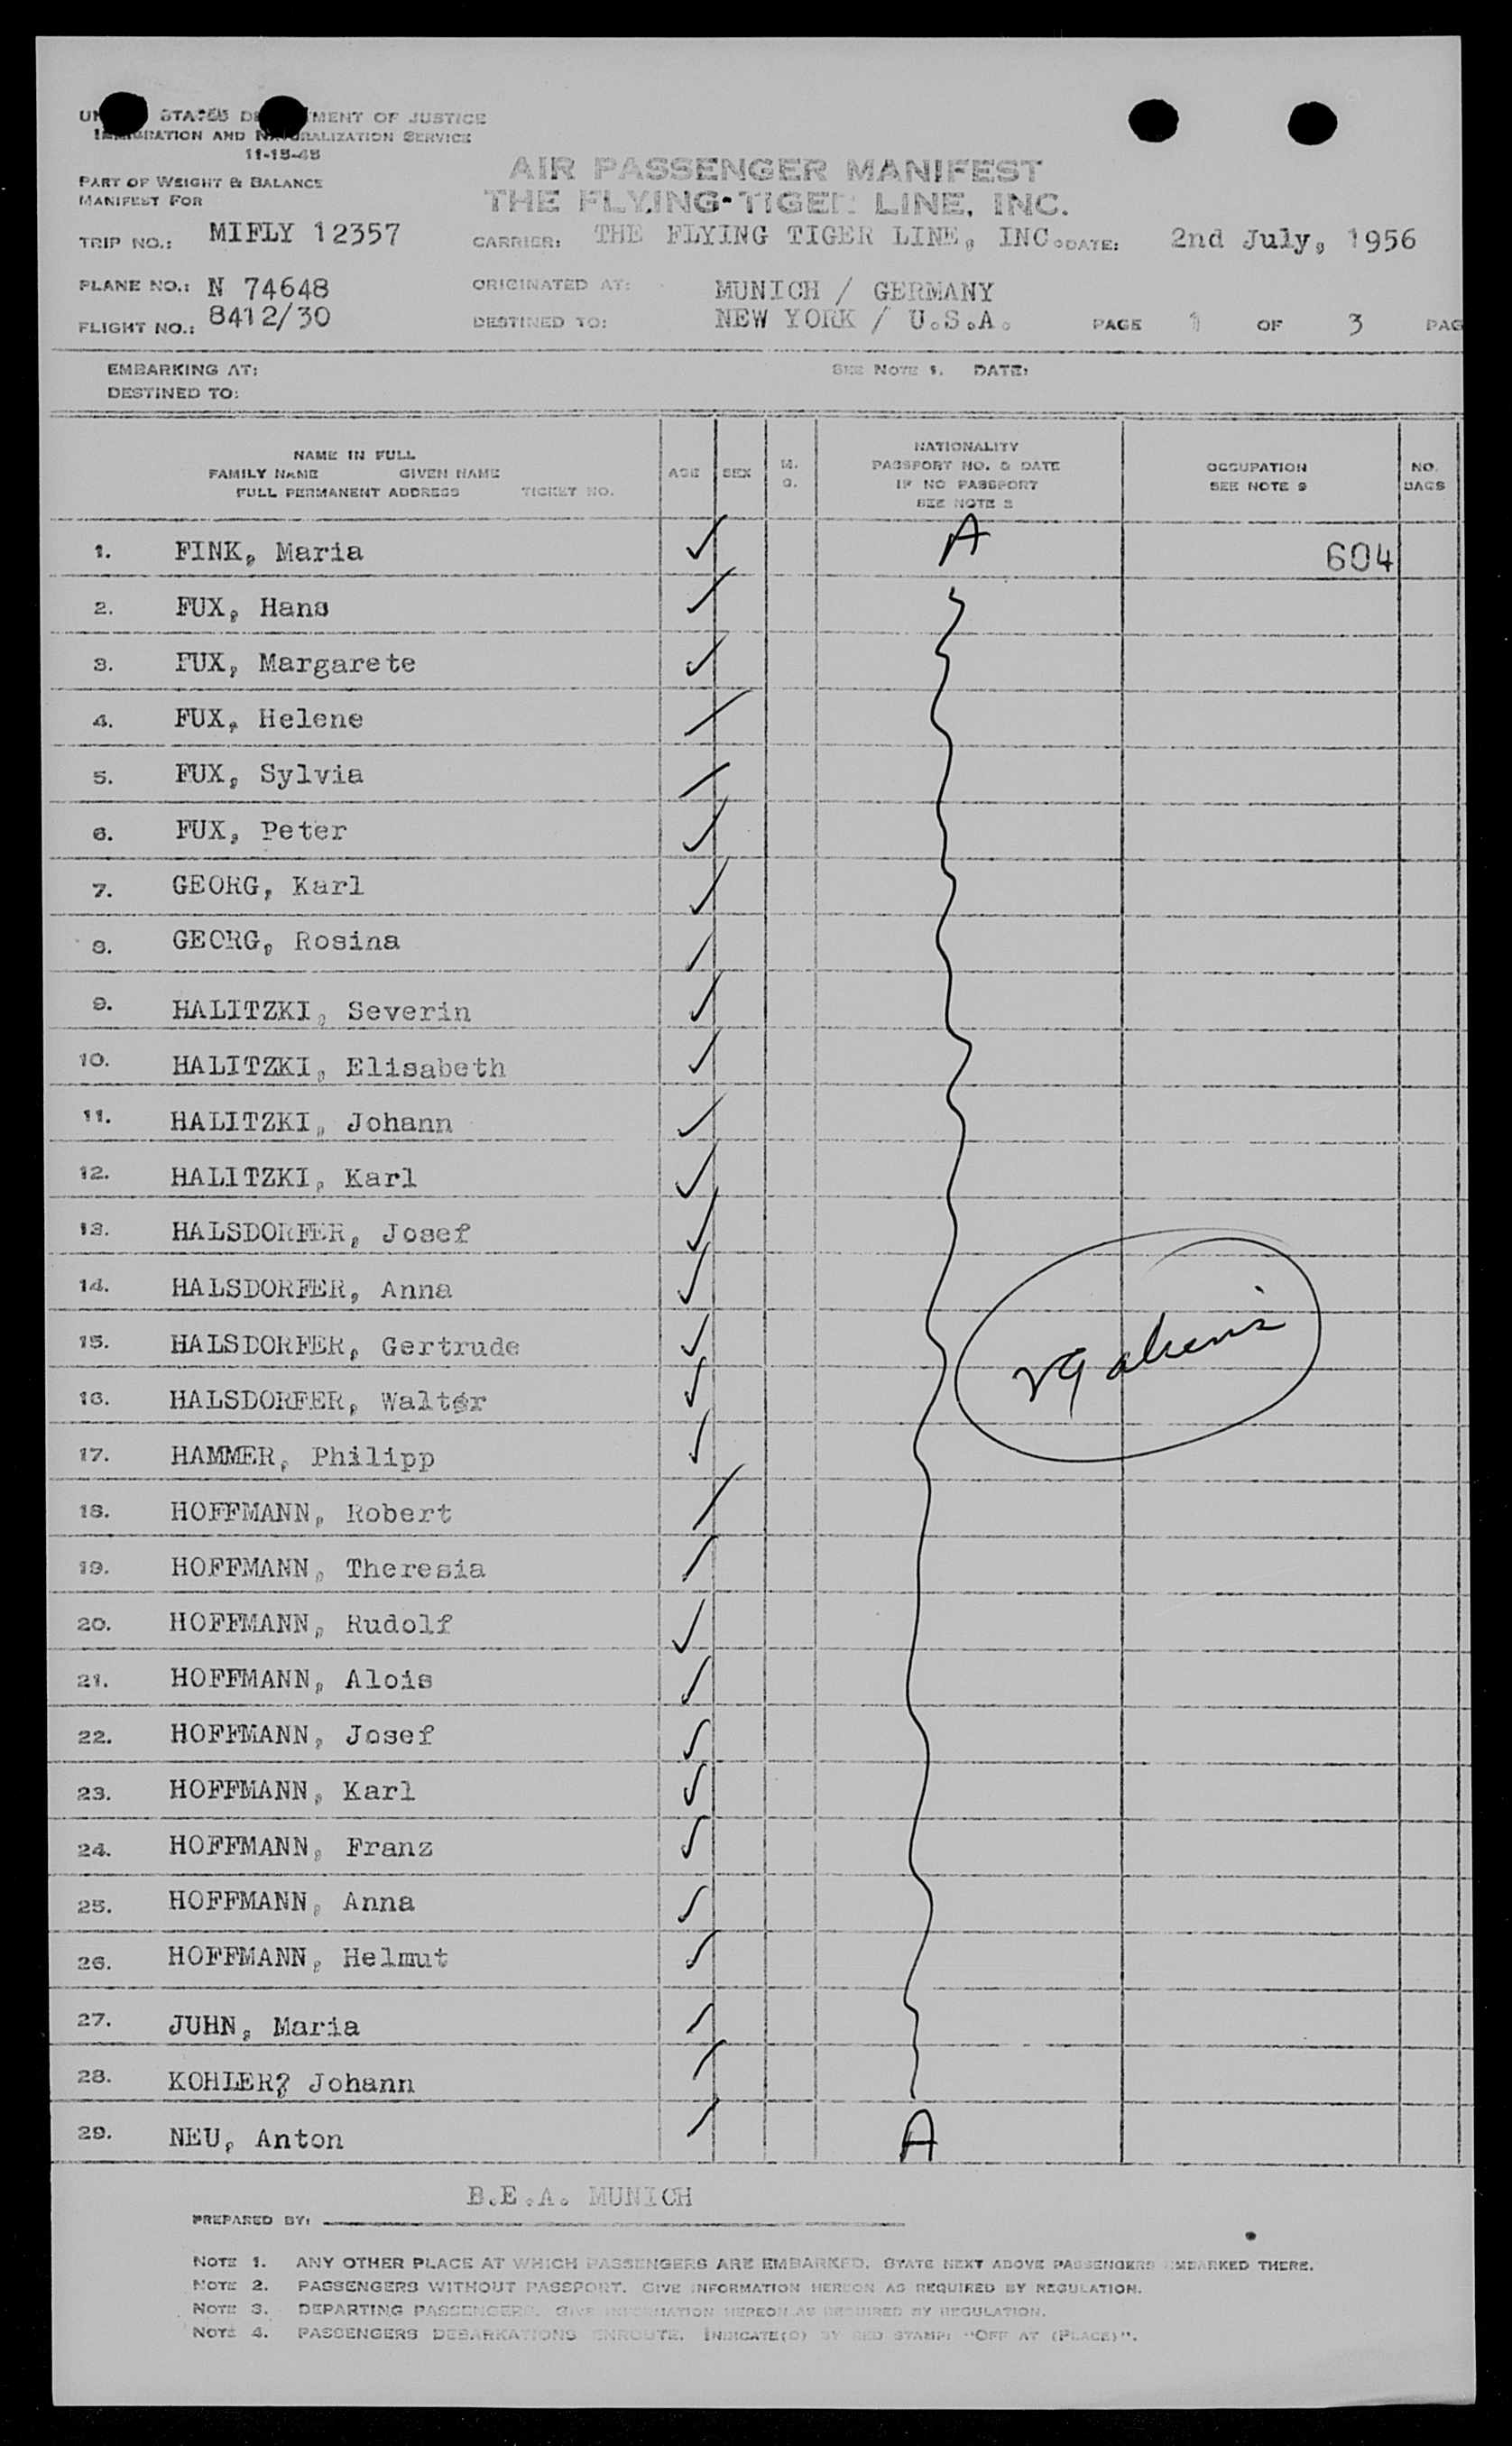 STATES DEPARTMENT OF JUSTICE
IMMIGRATION AND NATURALIZATION SERVICE
11-15-45
PART OF WEIGHT & BALANCE
MANIFEST FOR
AIR PASSENGER MANIFEST
THE FLYING-TIGER LINE, INC.
TRIP NO.: MIFLY 12357 CARRIER: THE FLYING TIGER LINE, INC. DATE: 2nd July, 1956
PLANE NO.: N 74648 ORIGINATED AT: MUNICH / GERMANY
FLIGHT NO.: 8412/30 DESTINED TO: NEW YORK / U.S.A. PAGE 1 OF 3 PAG
EMBARKING AT: SEE NOTE 1. DATE:
DESTINED TO:
NAME IN FULL
FAMILY NAME GIVEN NAME
FULL PERMANENT ADDRESS TICKET NO.
AGE SEX M.
NATIONALITY
PASSPORT NO. & DATE
IF NO PASSPORT
SEE NOTE 2
OCCUPATION
SEE NOTE
NO.
BAGS
1. FINK, Maria A 604
2. FUX, Hans
3. FUX, Margarete
4. FUX, Helene
5. FUX, Sylvia
6. FUX, Peter
7. GEORG, Karl
8. GEORG, Rosina
9. HALITZKI, Severin
10. HALITZKI, Elisabeth
11. HALITZKI, Johann
12. HALITZKI, Karl
13. HALSDORFER, Josef
14. HALSDORFER, Anna
15. HALSDORFER, Gertrude
16. HALSDORFER, Walter
17. HAMMER, Philipp
18. HOFFMANN, Robert
19. HOFFMANN, Theresia
20. HOFFMANN, Rudolf
21. HOFFMANN, Alois
22. HOFFMANN, Josef
23. HOFFMANN, Karl
24. HOFFMANN, Franz
25. HOFFMANN, Anna
26. HOFFMANN, Helmut
27. JUHN, Maria
28. KOHLER? Johann
29. NEU, Anton A
29 aliens
B.E.A. MUNICH
PREPARED BY:
NOTE 1. ANY OTHER PLACE AT WHICH PASSENGERS ARE EMBARKED. STATE NEXT ABOVE PASSENGERS EMBARKED THERE.
NOTE 2. PASSENGERS WITHOUT PASSPORT. GIVE INFORMATION HEREON AS REQUIRED BY REGULATION.
NOTE 3. DEPARTING PASSENGERS. GIVE INFORMATION HEREON AS REQUIRED BY REGULATION.
NOTE 4. PASSENGERS DEBARKATIONS ENROUTE. INDICATE(D) BY RED STAMP: "OFF AT (PLACE)".